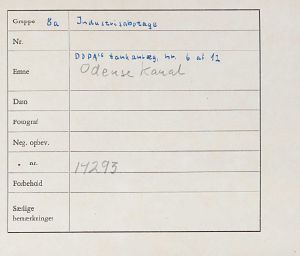 Gruppe 8a Industrisabotage
Nr.
DDPA's tankanlæg. nr. 6 af 12
Emne Odense Kanal
Dato
Fotograf
Neg. opbev.
" nr. 14293
Forbehold
Særlige
bemærkninger